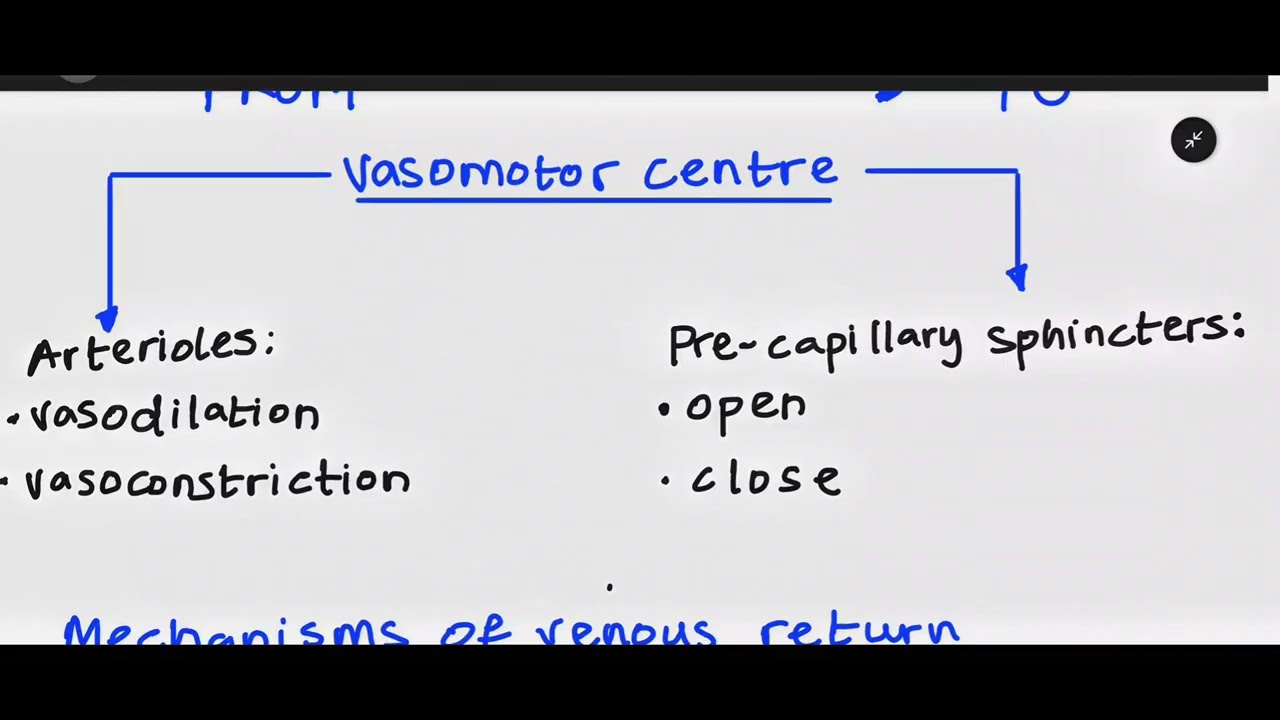 FROM TO
vasomotor centre
Arterioles:
Pre-capillary sphincters:
• vasodilation
• open
• vasoconstriction
• close
Mechanisms of venous return